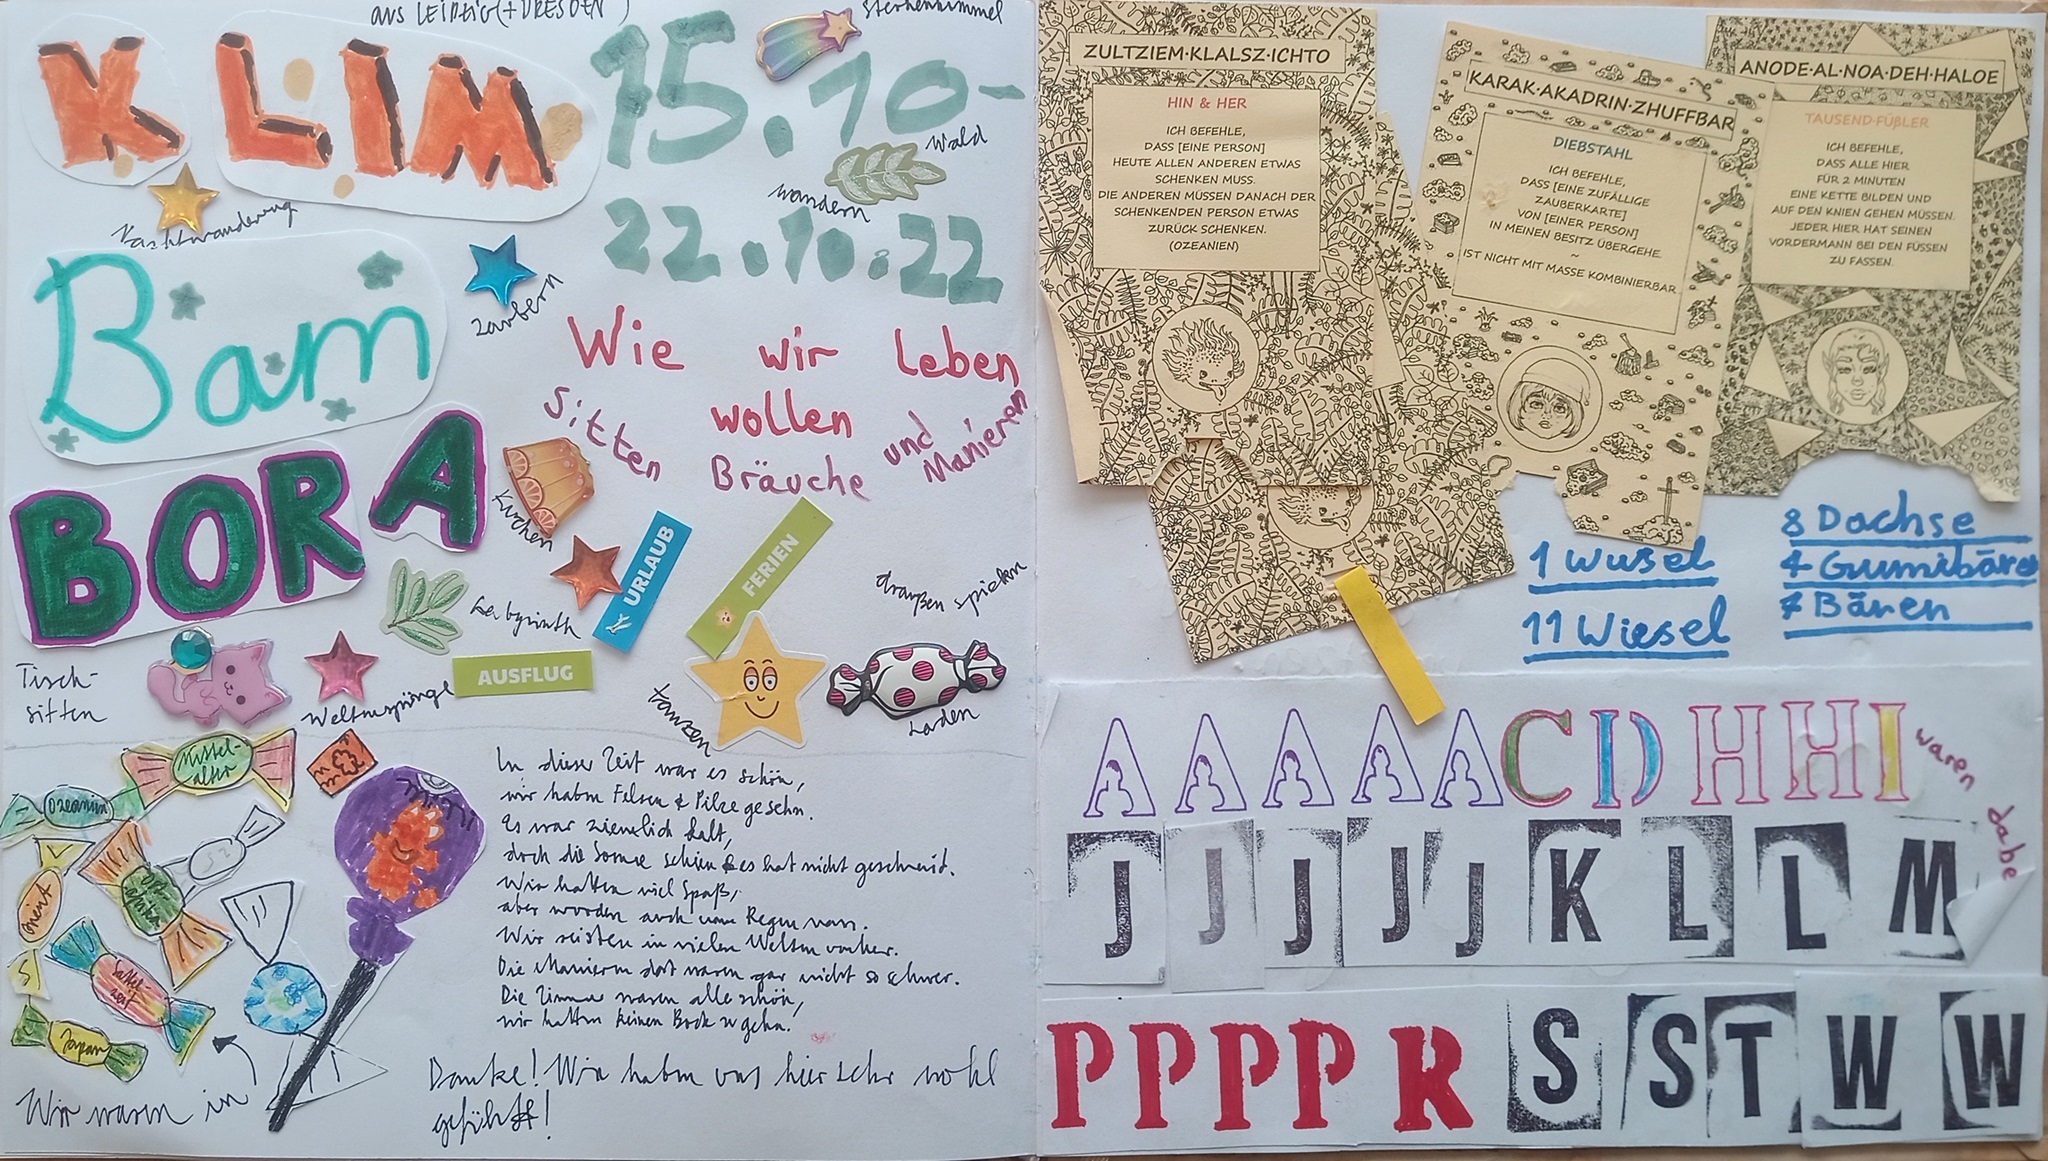 aus LEIPZIG (+DRESDEN)
KLIM
Bam
BORA
15.10-
22.10.22
Sternenhimmel
Wald
wandern
Nachtwanderung
zaubern
Wie wir leben
wollen
Sitten Bräuche und Manieren
Kuchen
URLAUB
FERIEN
AUSFLUG
Labyrinth
draußen spielen
Tisch-
sitten
Weltensprünge
tanzen
Laden
Mittel-
alter
Ozeanien
Orient
Japan
Wir waren in
In dieser Zeit war es schön,
wir haben Felsen & Pilze gesehn.
Es war ziemlich kalt,
doch die Sonne schien & es hat nicht geschneit.
Wir hatten viel Spaß,
aber wurden auch vom Regen nass.
Wir reisten in vielen Welten umher.
Die Manieren dort waren gar nicht so schwer.
Die Zimmer waren alle schön,
wir hatten keinen Bock zu gehn.
Danke! Wir haben uns hier sehr wohl
gefühlt!
ZULTZIEM·KLALSZ·ICHTO
HIN & HER
ICH BEFEHLE,
DASS [EINE PERSON]
HEUTE ALLEN ANDEREN ETWAS
SCHENKEN MUSS.
DIE ANDEREN MÜSSEN DANACH DER
SCHENKENDEN PERSON ETWAS
ZURÜCK SCHENKEN.
(OZEANIEN)
KARAK·AKADRIN·ZHUFFBAR
DIEBSTAHL
ICH BEFEHLE,
DASS [EINE ZUFÄLLIGE
ZAUBERKARTE]
VON [EINER PERSON]
IN MEINEN BESITZ ÜBERGEHE.
~
IST NICHT MIT MASSE KOMBINIERBAR
ANODE·AL·NOA·DEH·HALOE
TAUSEND·FÜßLER
ICH BEFEHLE,
DASS ALLE HIER
FÜR 2 MINUTEN
EINE KETTE BILDEN UND
AUF DEN KNIEN GEHEN MÜSSEN.
JEDER HIER HAT SEINEN
VORDERMANN BEI DEN FÜSSEN
ZU FASSEN.
1 Wusel
11 Wiesel
8 Dachse
4 Gumibären
7 Bären
A A A A A C D H H I
waren dabe
J J J J J K L L M
P P P P R S S T W W